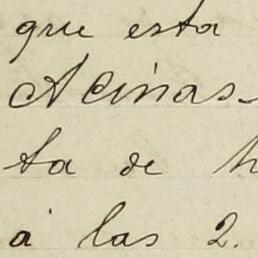 que esta
Acinas
ta de h
á las 2.